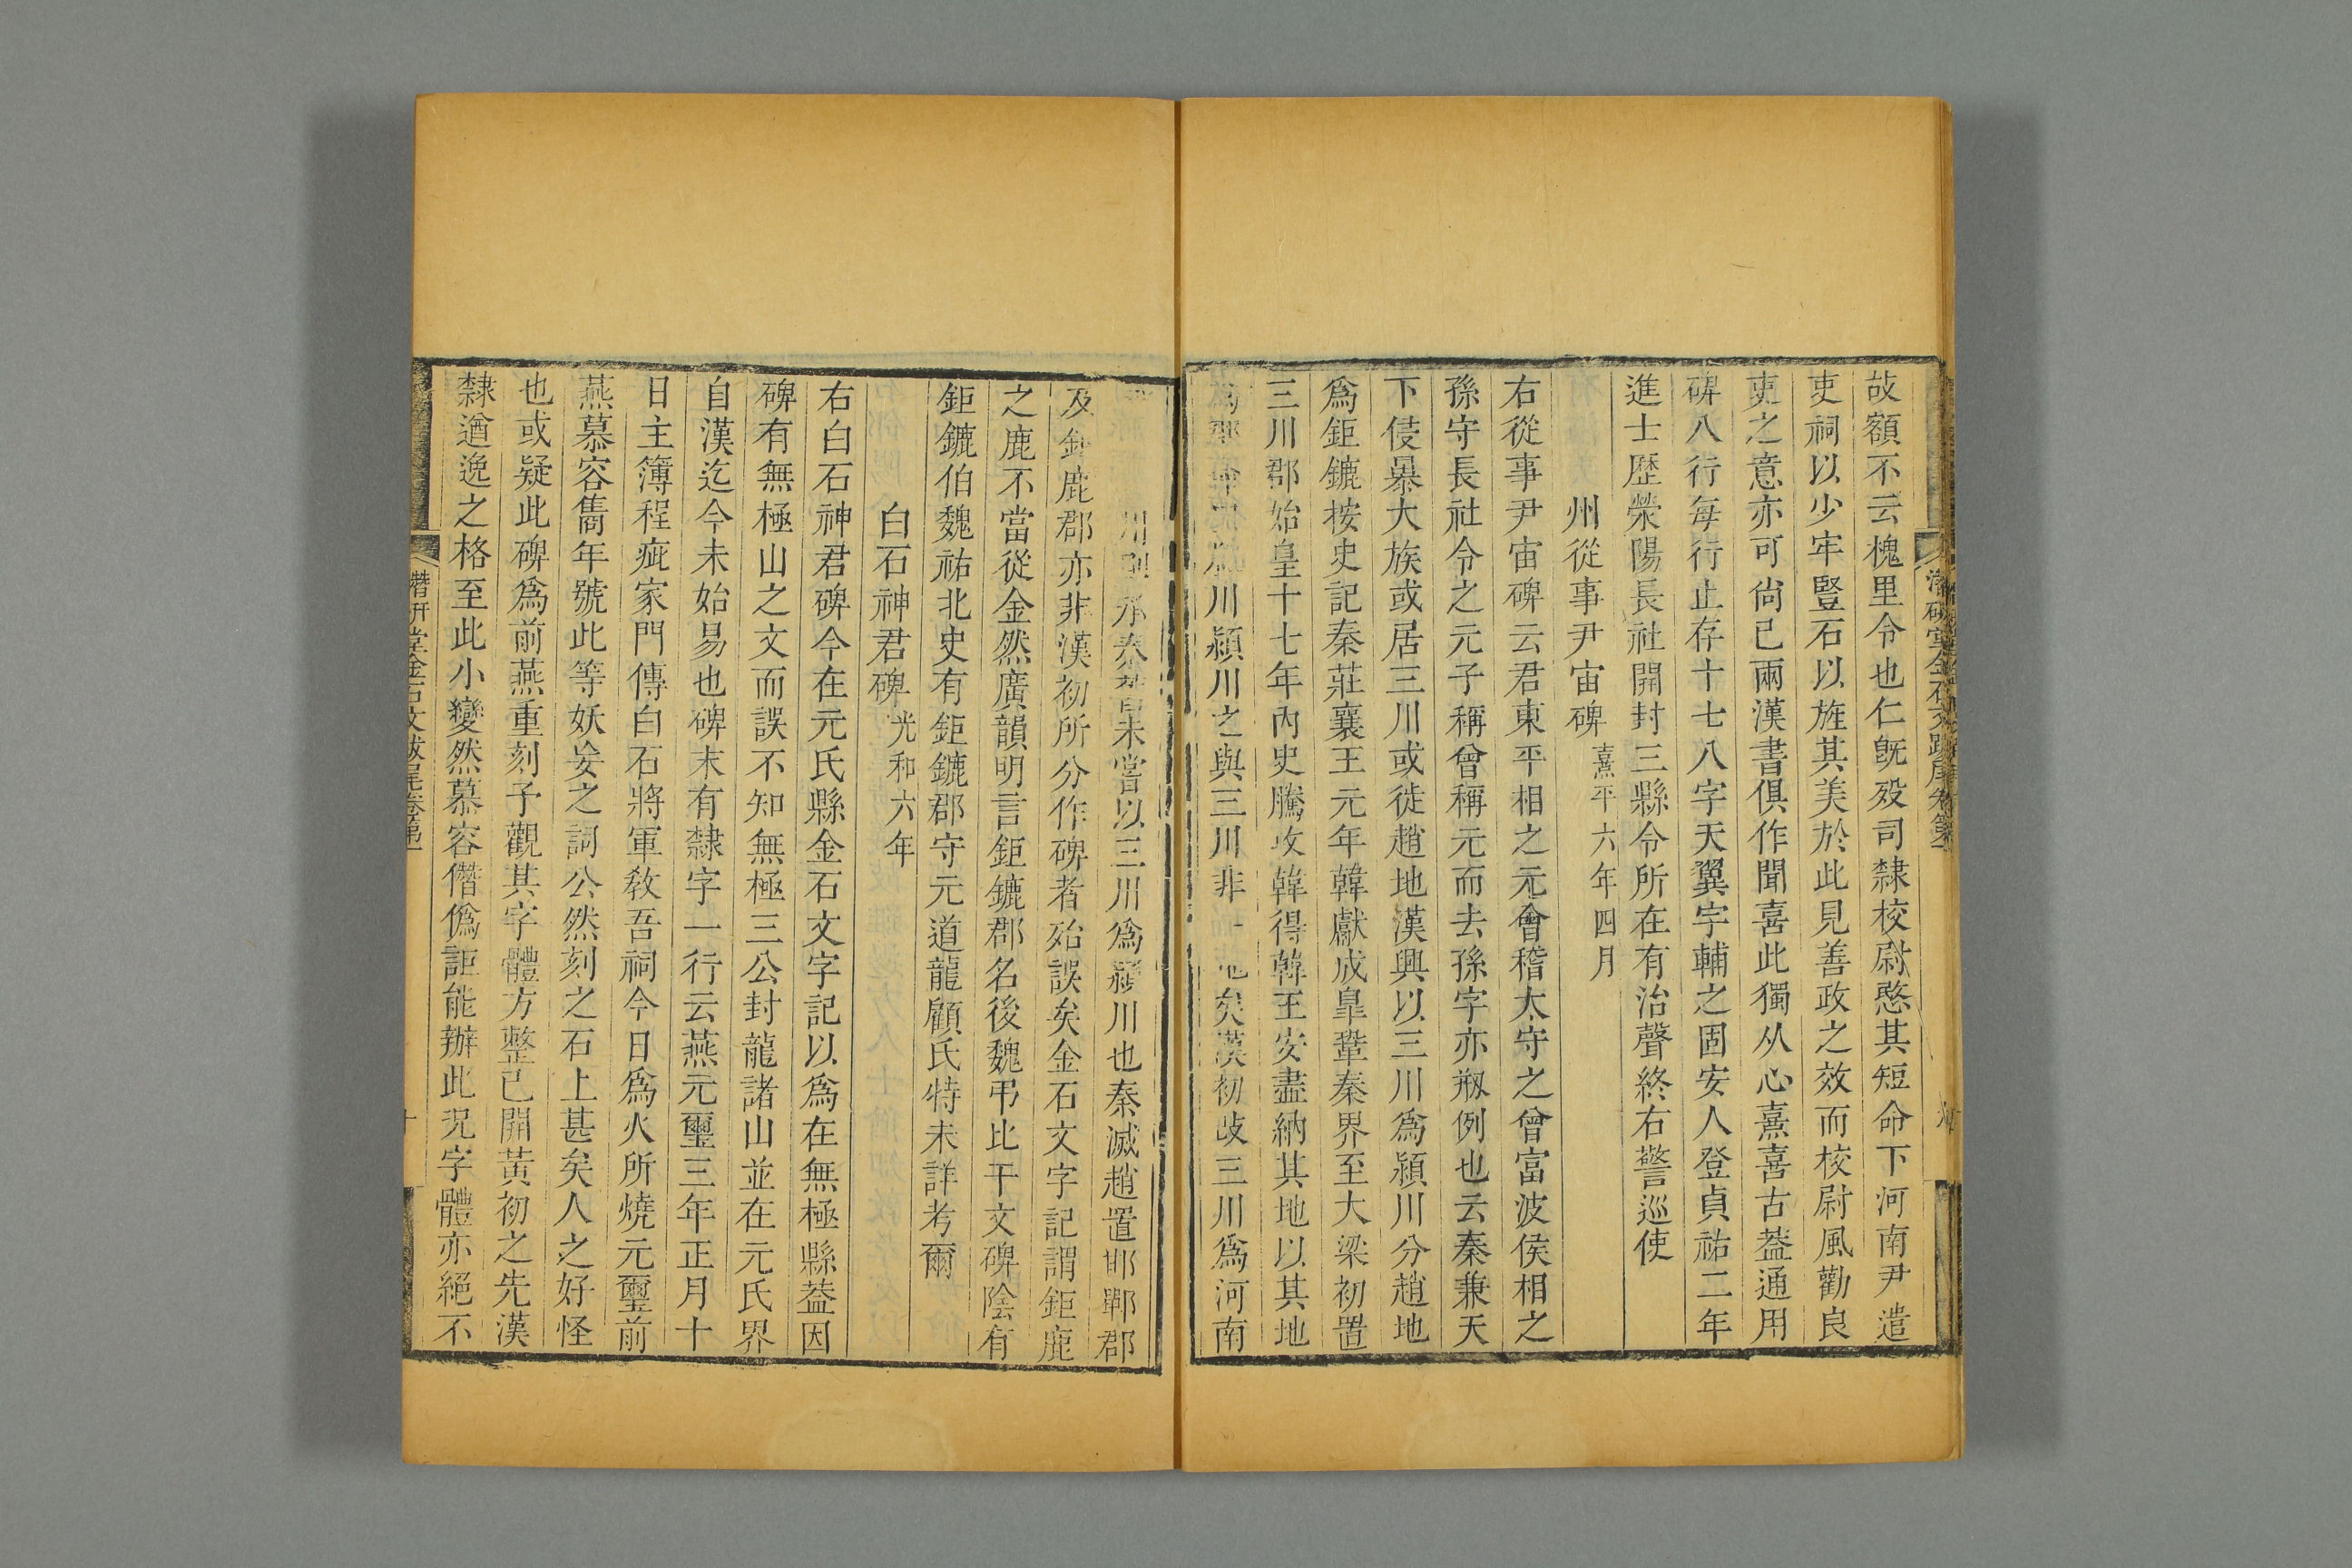 故額不云槐里令也仁旣歿司隸校尉愍其短命下河南尹遣
吏祠以少牢豎石以旌其美於此見善政之效而校尉風勸良
吏之意亦可尚已兩漢書俱作聞喜此獨从心熹喜古葢通用
碑八行每行止存十七八字天翼字輔之固安人登貞祐二年
進士歷滎陽長社開封三縣令所在有治聲終右警巡使
州從事尹宙碑 熹平六年四月
右從事尹宙碑云君東平相之元會稽太守之曾富波侯相之
孫守長社令之元子稱曾稱元而去孫字亦剏例也云秦兼天
下侵暴大族或居三川或徙趙地漢興以三川爲潁川分趙地
爲鉅鏕按史記秦莊襄王元年韓獻成皐鞏秦界至大梁初置
三川郡始皇十七年內史騰攻韓得韓王安盡納其地以其地
爲郡 川潁川之與三川非 地矣漢初改三川爲河南
川 未嘗以三川爲潁川也秦滅趙置邯鄲郡
及鉅鹿郡亦非漢初所分作碑者殆誤矣金石文字記謂鉅鹿
之鹿不當從金然廣韻明言鉅鏕郡名後魏弔比干文碑陰有
鉅鏕伯魏祐北史有鉅鏕郡守元道龍顧氏特未詳考爾
白石神君碑 光和六年
右白石神君碑今在元氏縣金石文字記以爲在無極縣葢因
碑有無極山之文而誤不知無極三公封龍諸山並在元氏界
自漢迄今未始易也碑末有隸字一行云燕元璽三年正月十
日主簿程疵家門傳白石將軍敎吾祠今日爲火所燒元璽前
燕慕容儁年號此等妖妄之詞公然刻之石上甚矣人之好怪
也或疑此碑爲前燕重刻予觀其字體方整已開黃初之先漢
隸遒逸之格至此小變然慕容僭僞詎能辦此況字體亦絕不
潛研堂金石文跋尾卷第一
十